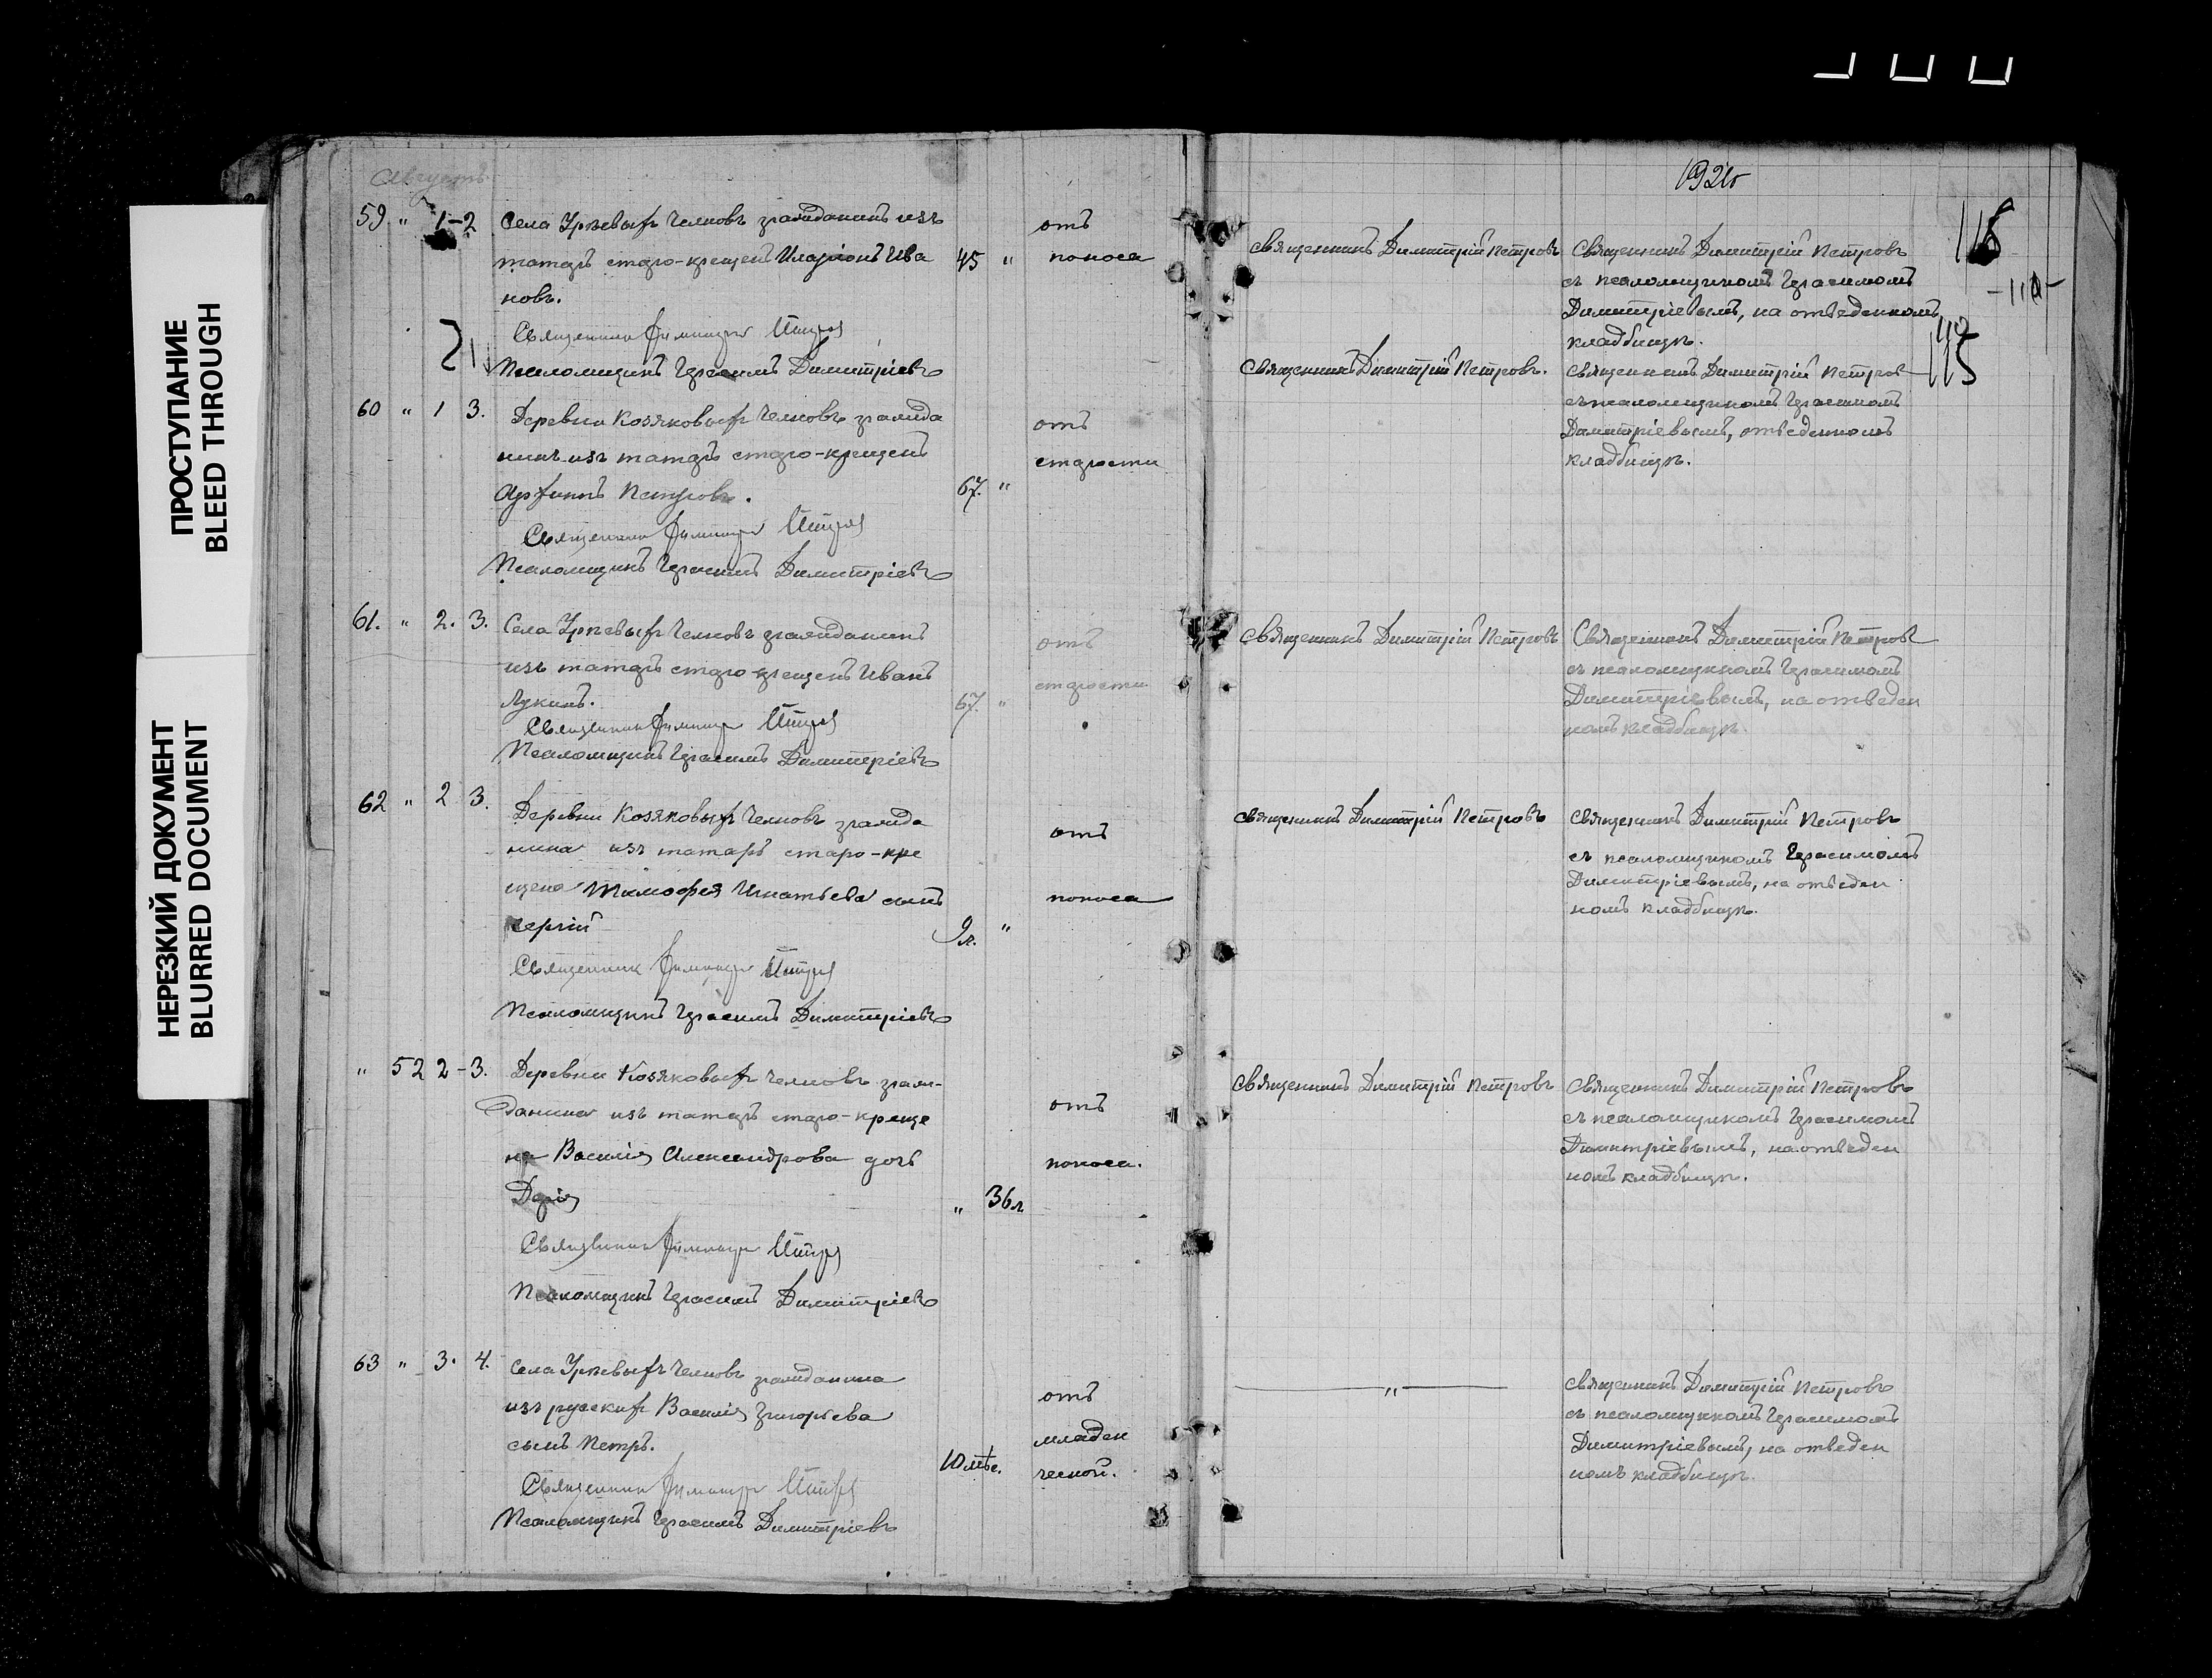 ПРОСТУПАНИЕ
BLEED THROUGH
НЕРЕЗКИЙ ДОКУМЕНТ
BLURRED DOCUMENT
Августъ
59. " 1-2 Села Уреевыхъ Челновъ гражданинъ изъ
татаръ старо-крещенъ Иларіонъ Ива
новъ.
45 "
отъ
поноса
Священникъ Димитрій Петровъ
Псаломщикъ Герасимъ Димитріевъ
60 " 1 3. Деревни Козяковыхъ Челновъ гражда
нинъ изъ татаръ старо-крещенъ
Петровъ.
67. "
отъ
старости
Священникъ Димитрій Петровъ
Псаломщикъ Герасимъ Димитріевъ
61. " 2. 3. Села Уреевыхъ Челновъ гражданинъ
изъ татаръ старо-крещенъ Иванъ
Лукинъ.
67. "
отъ
старости
Священникъ Димитрій Петровъ
Псаломщикъ Герасимъ Димитріевъ
62 " 2 3. Деревни Козяковыхъ Челновъ гражда
нина изъ татаръ старо-кре
щена Тимофея Игнатьева сынъ
Сергій
9л. "
отъ
поноса
Священникъ Димитрій Петровъ
Псаломщикъ Герасимъ Димитріевъ
" 52 2-3. Деревни Козяковыхъ Челновъ граж-
данина изъ татаръ старо-креще
на Василія Александрова дочь
Дарія
" 36л
отъ
поноса.
Священникъ Димитрій Петровъ
Псаломщикъ Герасимъ Димитріевъ
63 " 3. 4. Села Уреевыхъ Челновъ гражданина
изъ русскихъ Василія Григорьева
сынъ Петръ.
10 мѣс.
отъ
младен
ческой.
Священникъ Димитрій Петровъ
Псаломщикъ Герасимъ Димитріевъ
Священникъ Димитрій Петровъ
Священникъ Димитрій Петровъ
съ псаломщикомъ Герасимомъ
Димитріевымъ, на отведенномъ
кладбищѣ.
115
Священникъ Димитрій Петровъ.
Священникъ Димитрій Петровъ
съ псаломщикомъ Герасимомъ
Димитріевымъ, отведенномъ
кладбищѣ.
Священникъ Димитрій Петровъ
Священникъ Димитрій Петровъ
съ псаломщикомъ Герасимомъ
Димитріевымъ, на отведен
номъ кладбищѣ.
Священникъ Димитрій Петровъ
Священникъ Димитрій Петровъ
съ псаломщикомъ Герасимомъ
Димитріевымъ, на отведен
номъ кладбищѣ.
Священникъ Димитрій Петровъ
Священникъ Димитрій Петровъ
съ псаломщикомъ Герасимомъ
Димитріевымъ, на отведен
номъ кладбищѣ.
"
Священникъ Димитрій Петровъ
съ псаломщикомъ Герасимомъ
Димитріевымъ, на отведен
номъ кладбищѣ.